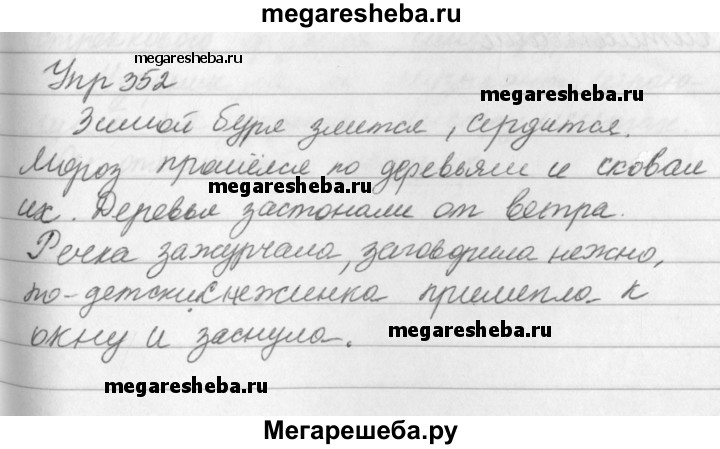 megaresheba.ru
megaresheba.ru
Упр 352
megaresheba.ru
Зимой буря злится, сердится.
Мороз прошёлся по деревьям и сковал
megaresheba.ru
их. Деревья застонали от ветра.
Речка зажурчала, заговорила нежно,
по-детски. Снежинка прилипла к
окну и заснула.
megaresheba.ru
megaresheba.ru
Мегарешеба.ру